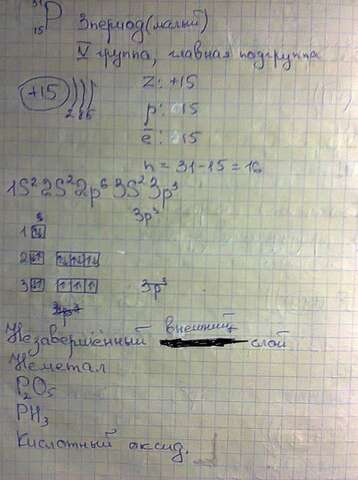 31
15 P 3 период (малый)
V группа, главная подгруппа
+15 ) ) ) 2 8 5
Z: +15
p: 15
e̅: 15
n = 31-15 = 16
1S² 2S² 2p⁶ 3S² 3p³
3p³
s
1 ↑↓
2 ↑↓ ↑↓ ↑↓ ↑↓
3 ↑↓ ↑ ↑ ↑ 3p³
Незавершённый внешний слой
Неметал
P₂O₅
PH₃
Кислотный оксид.